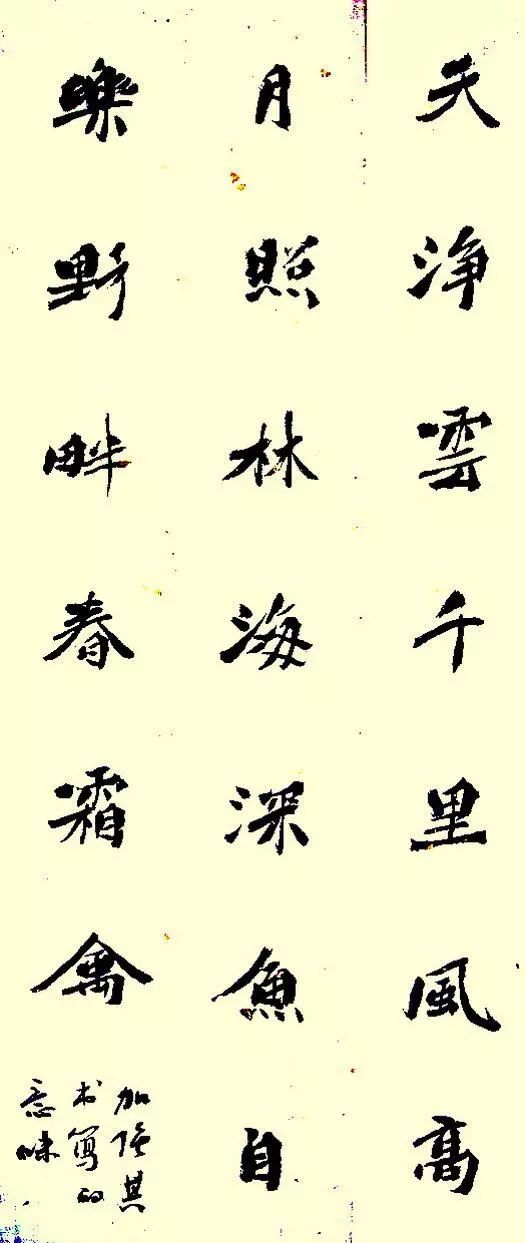 天淨雲千里風高
月照林海深魚自
樂野畔春霜禽
加强其
书写的
意味